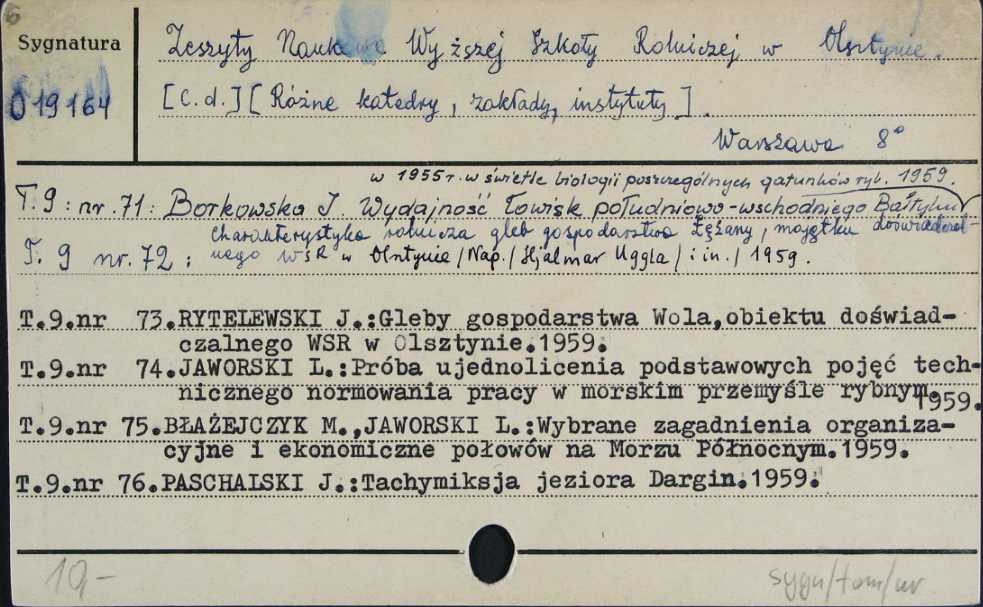 6
Sygnatura
Zeszyty Naukowe Wyższej Szkoły Rolniczej w Olsztynie.
O 19164
[C.d.] [Różne katedry, zakłady, instytuty].
Warszawa 8°
w 1955 r. w świetle biologii poszczególnych gatunków ryb. 1959.
T.9: nr. 71: Borkowska J. Wydajność łowisk południowo-wschodniego Bałtyku
charakterystyka rolnicza gleb gospodarstwa Łężany, majątku doświadczal-
T. 9 nr. 72: nego WSR w Olsztynie /Nap./ Hjalmar Uggla / i in./ 1959.
T.9.nr 73.RYTELEWSKI J.:Gleby gospodarstwa Wola,obiektu doświad-
czalnego WSR w Olsztynie.1959.
T.9.nr 74.JAWORSKI L.:Próba ujednolicenia podstawowych pojęć tech-
nicznego normowania pracy w morskim przemyśle rybnym.
1959.
T.9.nr 75.BŁAŻEJCZYK M.,JAWORSKI L.:Wybrane zagadnienia organiza-
cyjne i ekonomiczne połowów na Morzu Północnym.1959.
T.9.nr 76.PASCHALSKI J.:Tachymiksja jeziora Dargin.1959.
10,-
sygn/tom/nr